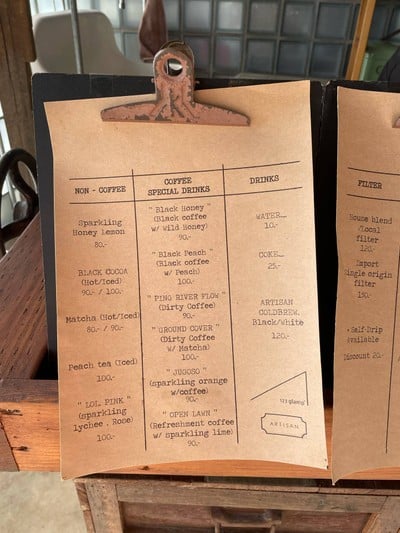 NON - COFFEE
Sparkling
Honey Lemon
80.-
BLACK COCOA
(Hot/Iced)
90.- / 100.-
Matcha (Hot/Iced)
80.- / 90.-
Peach tea (Iced)
100.-
" LOL PINK "
(sparkling
lychee . Rose)
100.-
COFFEE
SPECIAL DRINKS
" Black Honey "
(Black coffee
w/ Wild Honey)
90.-
"Black Peach "
(Black coffee
w/ Peach)
100.-
" PING RIVER FLOW "
(Dirty Coffee)
90.-
" GROUND COVER "
(Dirty Coffee
w/ Matcha)
100.-
" JUGOSO "
(sparkling orange
w/coffee)
90.-
" OPEN LAWN "
(Refreshment coffee
w/ sparkling lime)
90.-
DRINKS
WATER
10.-
COKE
25.-
ARTISAN
COLDBREW
Black/White
120.-
ARTISAN
FILTER
House blend
/Local
filter
120.-
Import
Single origin
filter
150.-
Self-Drip
available
Discount 20.-